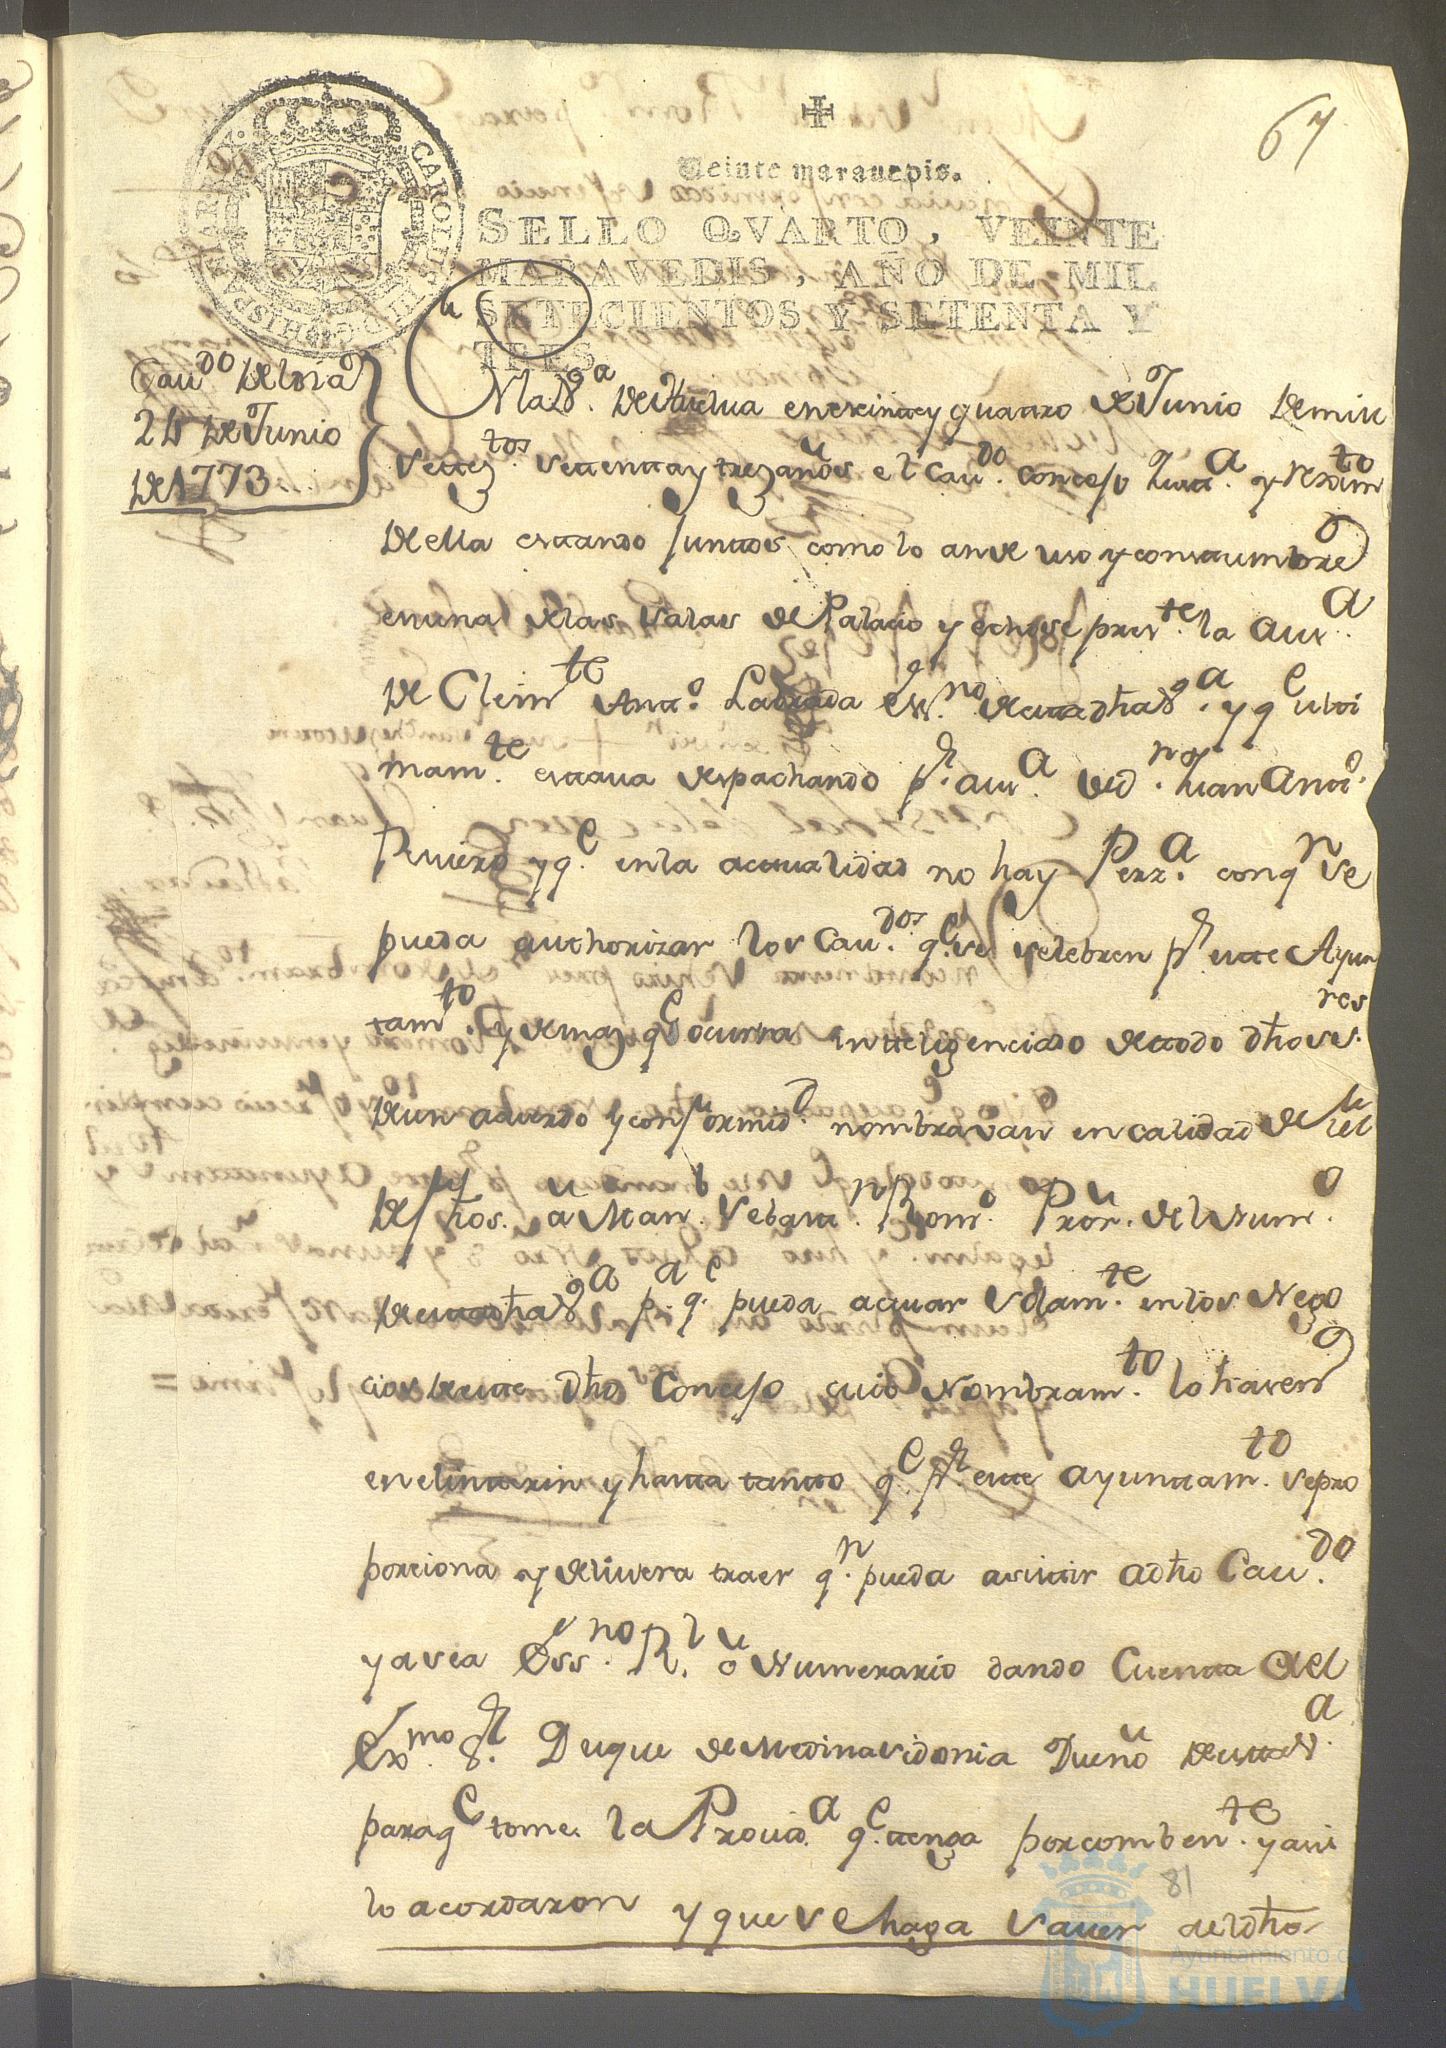 67
Veinte maravedis.
SELLO QVARTO, VEINTE
MARAVEDIS, AÑO DE MIL
SETECIENTOS Y SETENTA Y
TRES.
Cau.do Del dia
24 De Junio
De 1773
En la V.a de Huelva en veinte y quattro de Junio de mill
settez.tos settenta y trez años el Cau.do Concejo Justt.a y Reximto
de ella estando juntos como lo an de uso y constumbre
en una de las salas de Palacio y echose pres.te la aus.a
de Clem.te Antt.o Labrada Ess.no de esta dha V.a y q.e ulti
mam.te estava despachando p.r aus.a de d.n Juan Antt.o
Riviero y q.e en la actualidad no hay Perz.a con q.n se
pueda authorizar los Cau.dos q.e se selebren p.r este Ayun
tam.to y demaz q.e ocurra intteligenciado de todo dhos s.res
de un acuerdo y conformid.d nombravan en calidad de fiel
de fhos. a Man.l Sebast.n Rom.o Pror. del Num.o
de esta dha V.a p.a q.e pueda actuar solam.te en los Nego
cios de este dho Concejo cuio Nombram.to lo hasen
en el intterin y hasta tanto q.e p.r este ayuntam.to se pro
porciona y delivera traer q.n pueda asistir a dho Cau.do
y a sea Ess.no R.l o Numerario dando Cuenta al
Ex.mo S.r Duque de Medinasidonia Dueño de esta V.a
para q.e tome la Provid.a q.e tenga por comben.te y asi
lo acordaron y que se haga saver a el dho
81
Ayuntamiento de
HUELVA